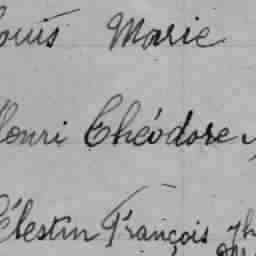 Louis Marie
Henri Théodore
Célestin François